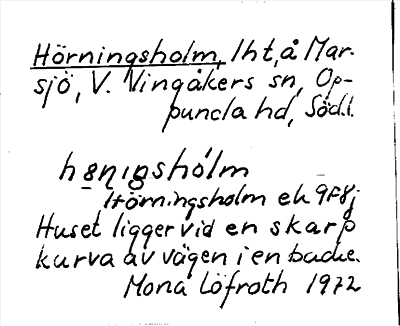 Hörningsholm, lht, å Mar-
sjö, V. Vingåkers sn, Op-
punda hd, Södl.
hø̱ṇıgshólm
Hörningsholm ek 9F8j
Huset ligger vid en skarp
kurva av vägen i en backe.
Mona Löfroth 1972